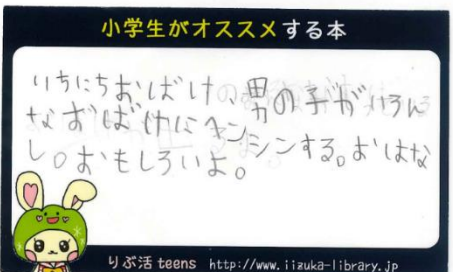 小学生がオススメする本
いちにちおばけの、男の子がいろん
なおばけにヘンシンする。おはな
し。おもしろいよ。
りぶ活 teens http://www.iizuka-library.jp